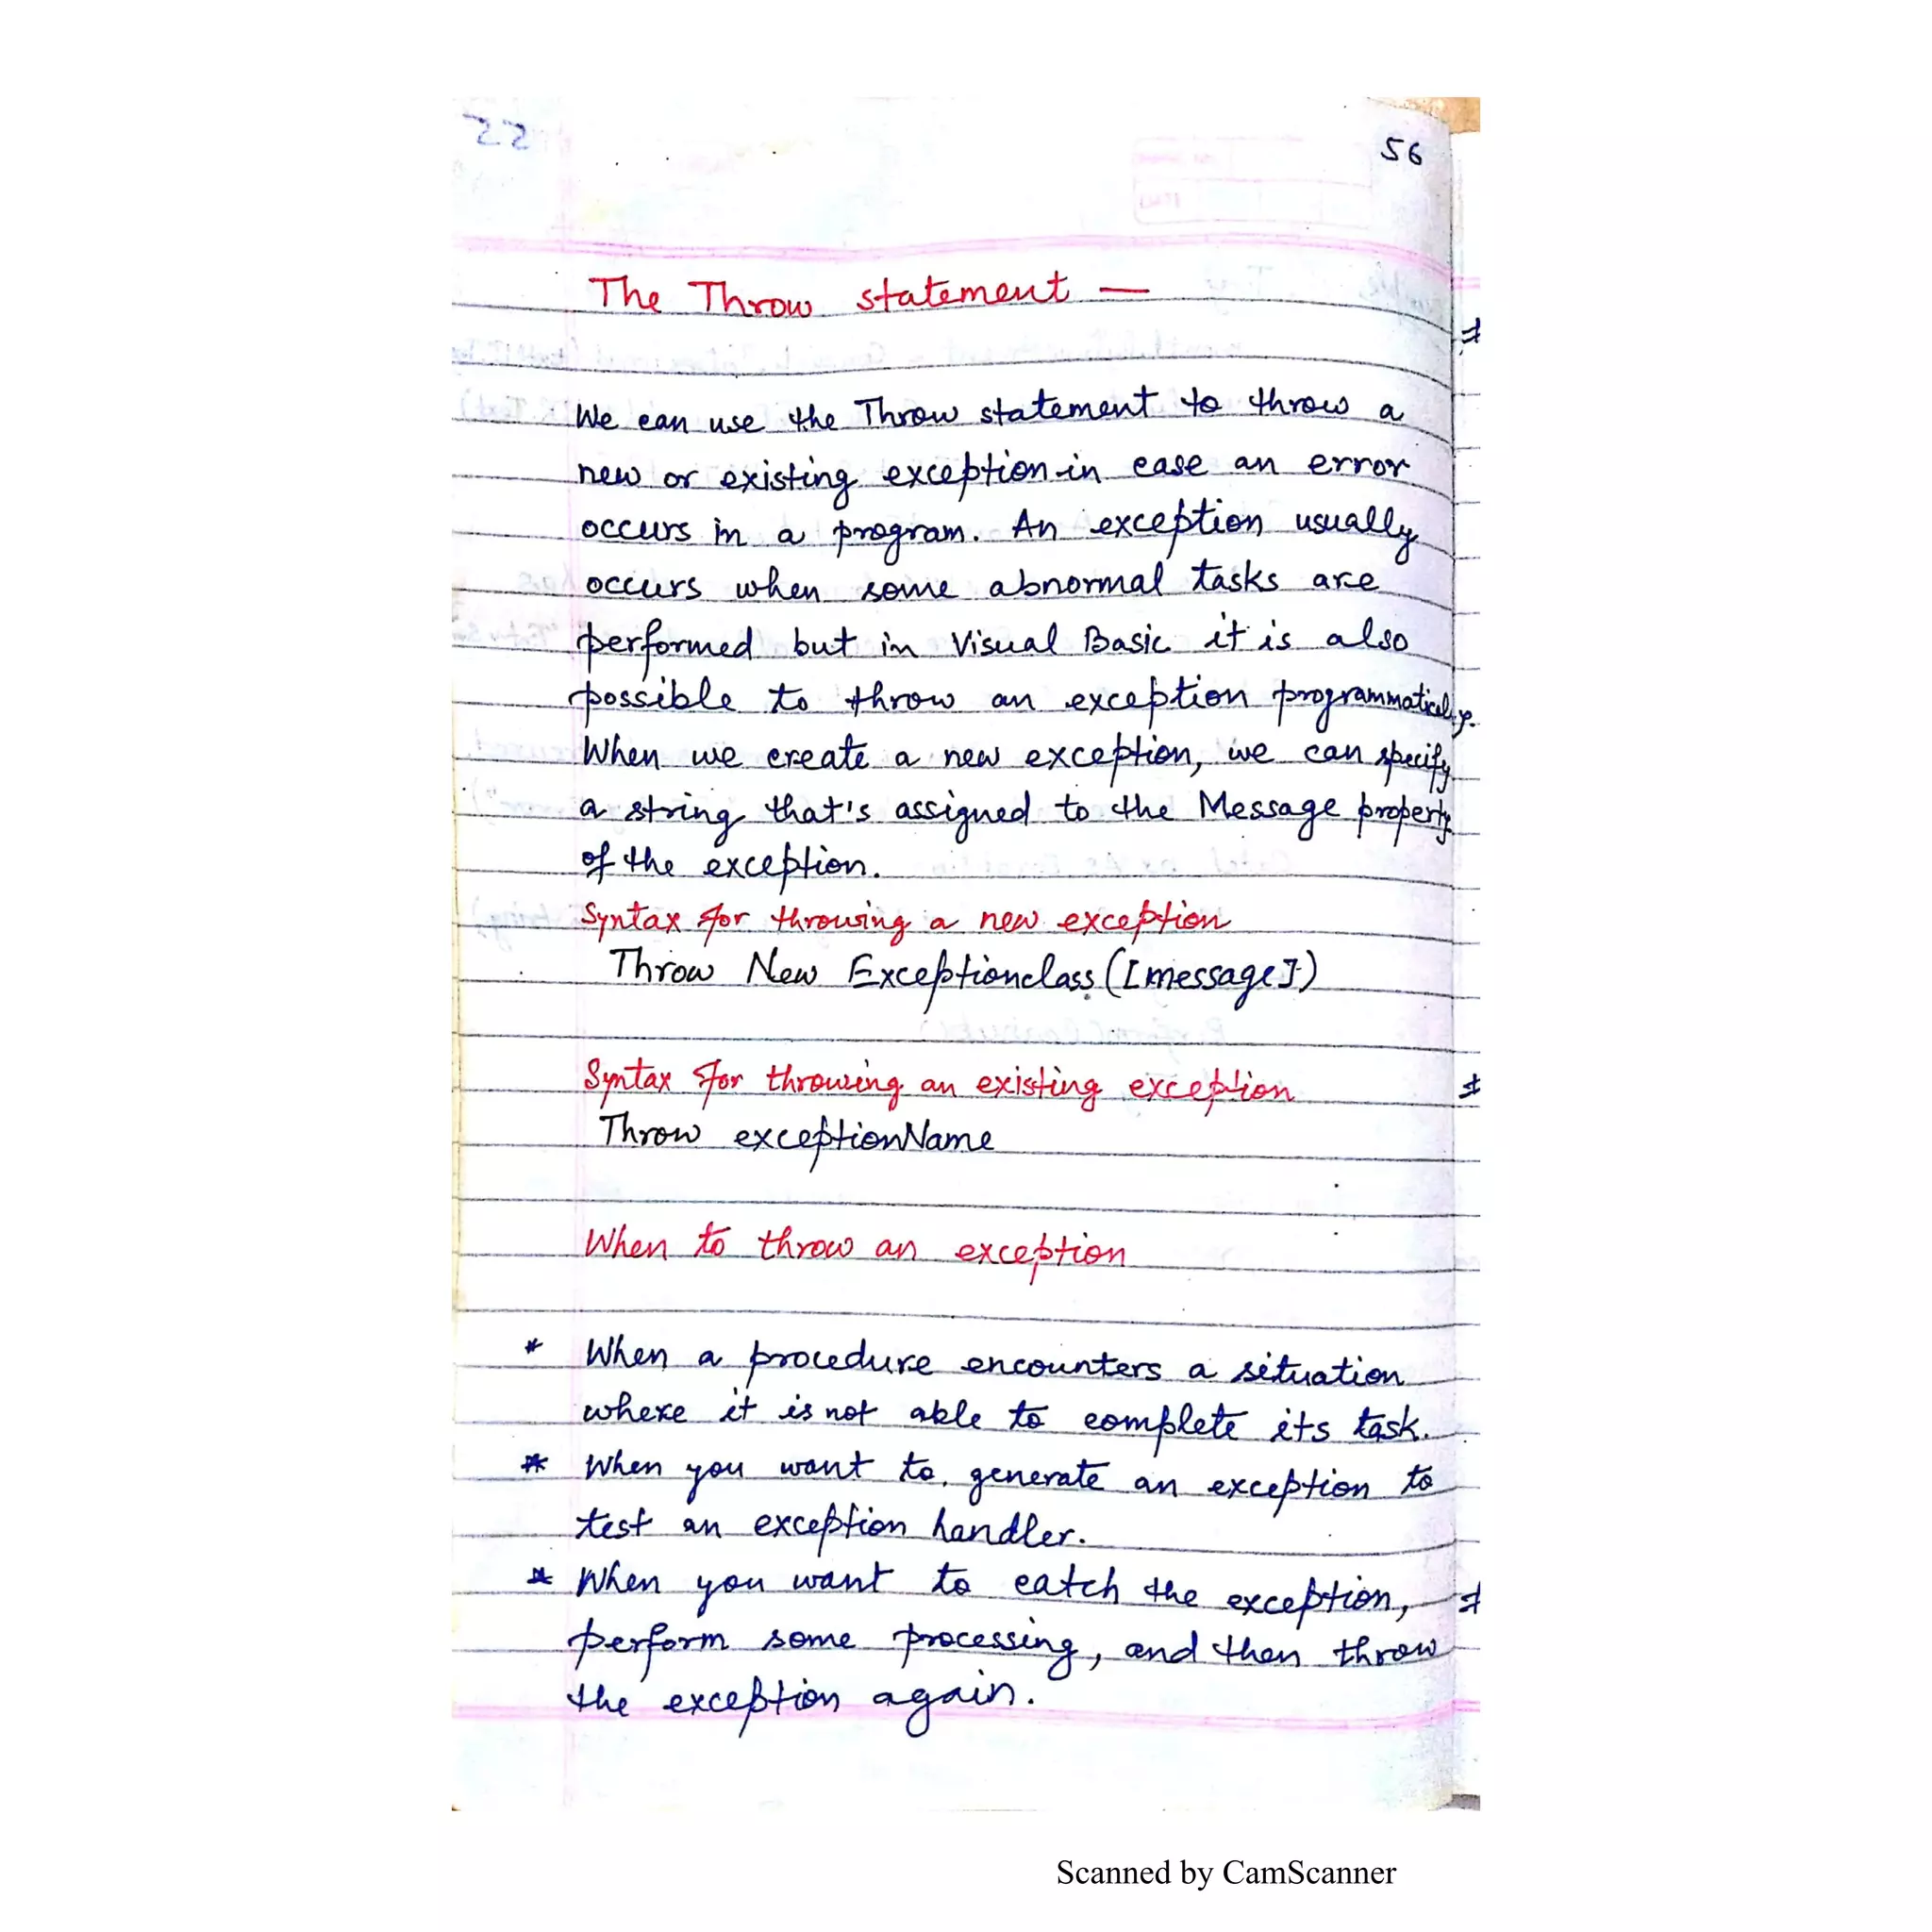 56
The Throw statement —
We can use the Throw statement to throw a
new or existing exception in case an error
occurs in a program. An exception usually
occurs when some abnormal tasks are
performed but in Visual Basic it is also
possible to throw an exception programmatically.
When we create a new exception, we can specify
a string that's assigned to the Message property
of the exception.
Syntax for throwing a new exception
Throw New Exceptionclass ([message])
Syntax for throwing an existing exception
Throw exceptionName
When to throw an exception
* When a procedure encounters a situation
where it is not able to complete its task.
* When you want to generate an exception to
test an exception handler.
* When you want to catch the exception,
perform some processing, and then throw
the exception again.
Scanned by CamScanner